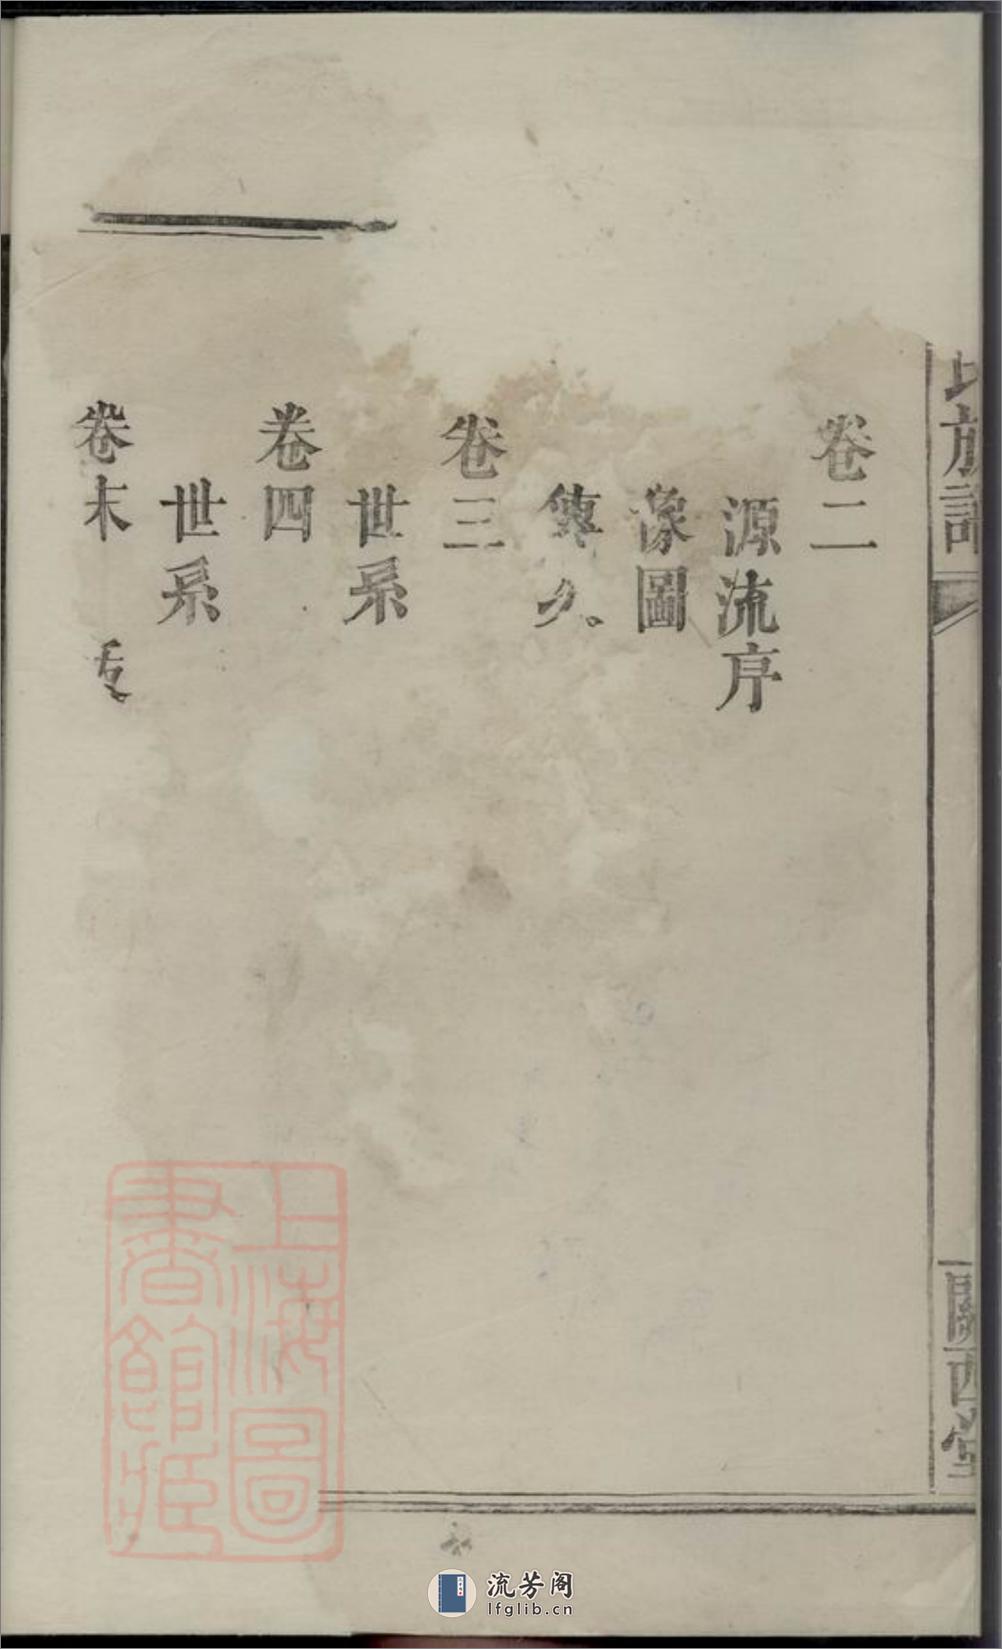 氏族譜
關西堂
卷二
源流序
像圖
傳
卷三
世系
卷四
世系
卷末
上海圖
書館藏
流芳阁
lfglib.cn